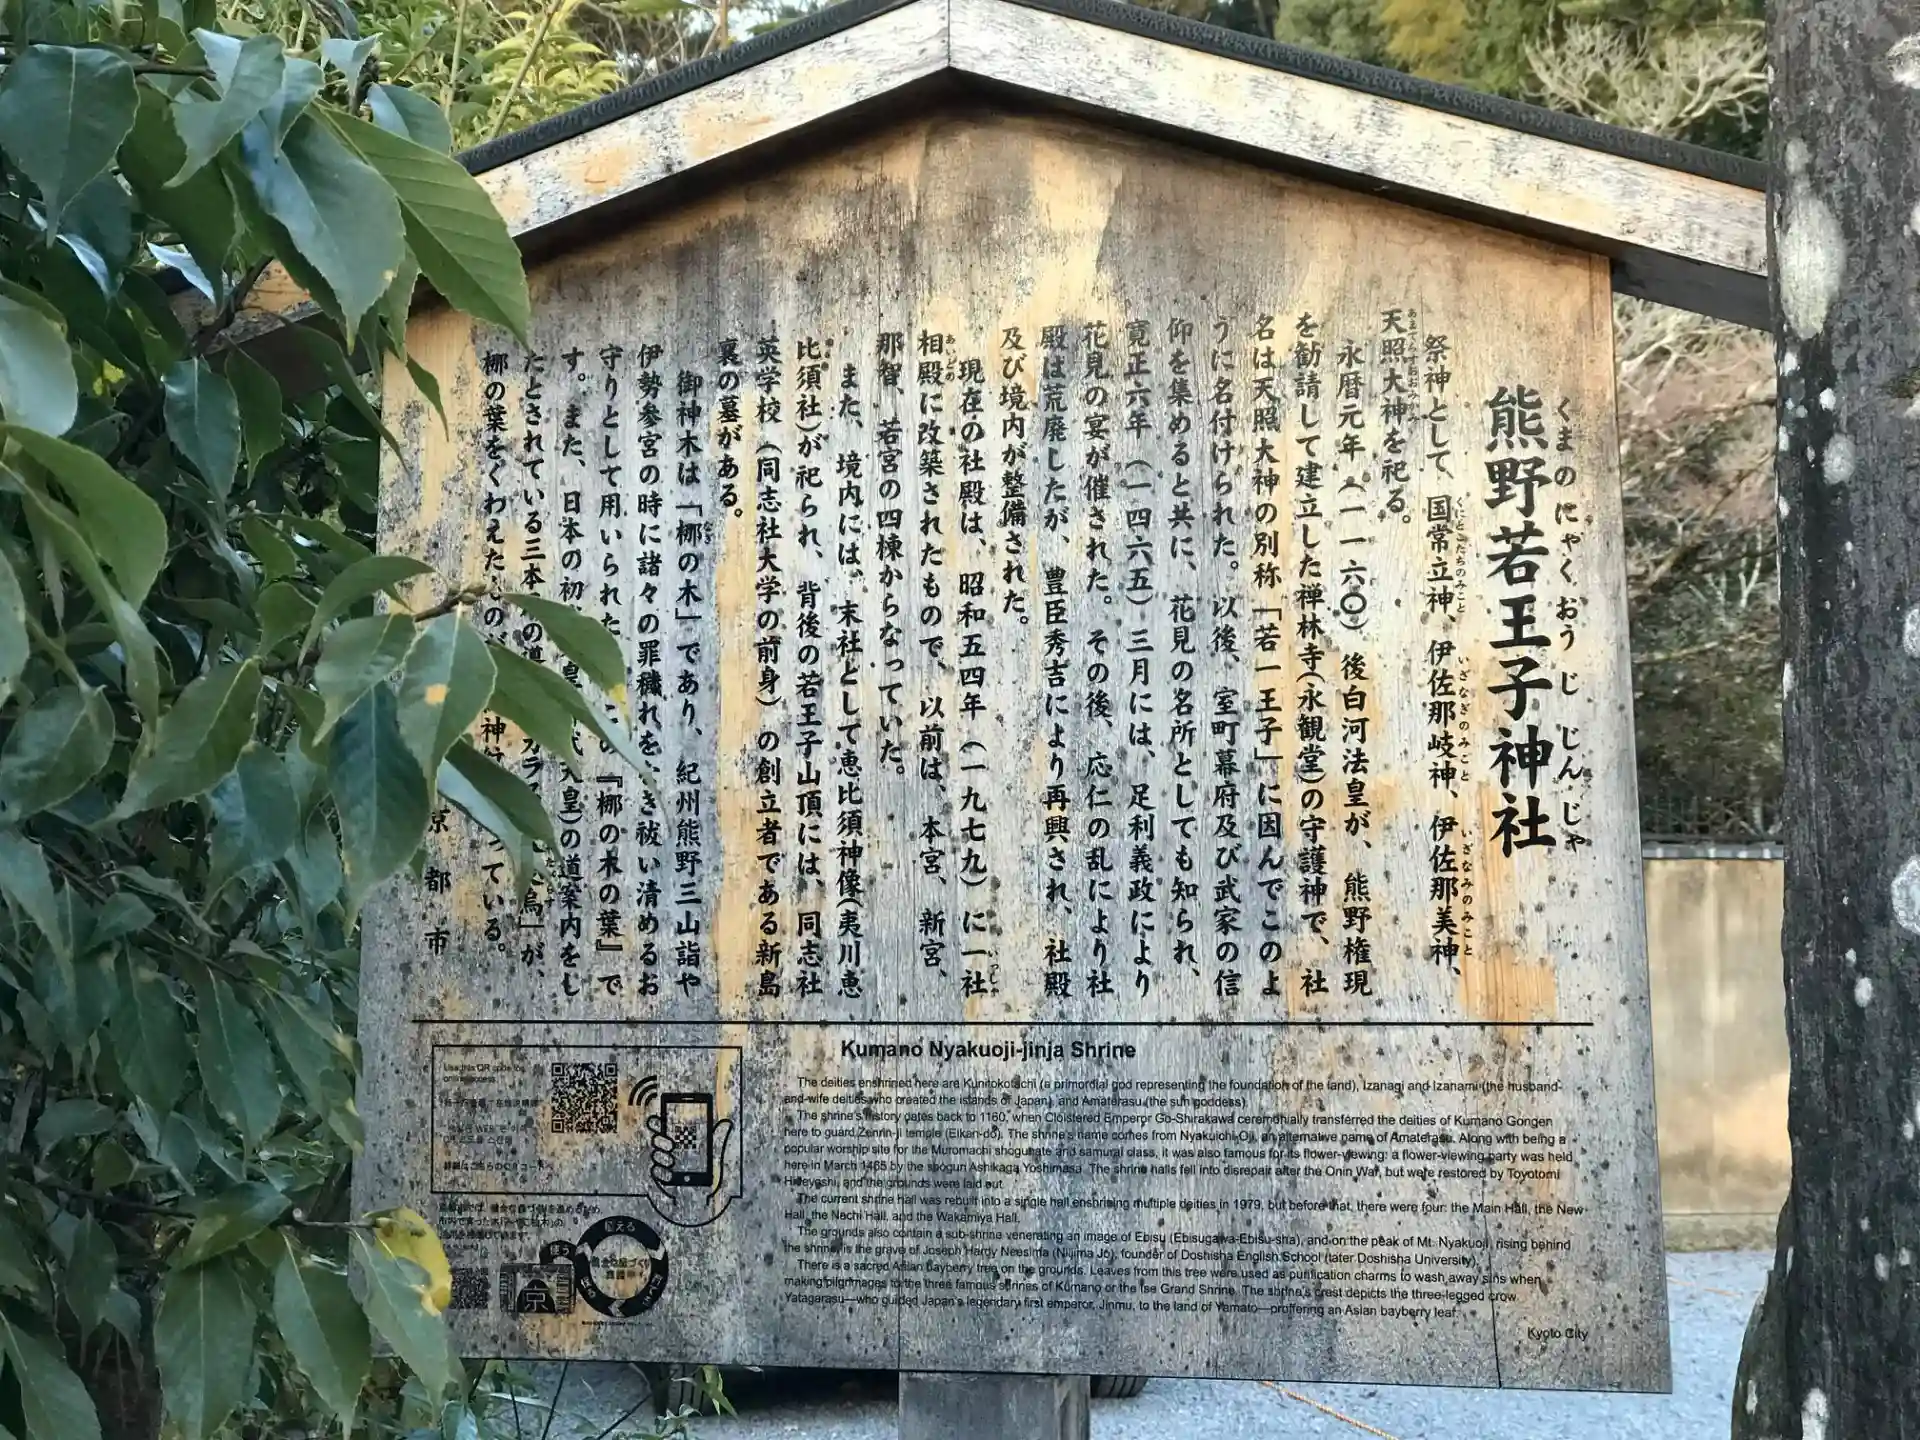 熊野若王子神社
くまのにゃくおうじじんじゃ
祭神として、国常立神、伊佐那岐神、伊佐那美神、
くにとこたちのみこと いざなぎのみこと いざなみのみこと
天照大神を祀る。
あまてらすおおみかみ
永暦元年(一一六〇)後白河法皇が、熊野権現
を勧請して建立した禅林寺(永観堂)の守護神で、社
名は天照大神の別称「若一王子」に因んでこのよ
うに名付けられた。以後、室町幕府及び武家の信
仰を集めると共に、花見の名所としても知られ、
寛正六年(一四六五)三月には、足利義政により
花見の宴が催された。その後、応仁の乱により社
殿は荒廃したが、豊臣秀吉により再興され、社殿
及び境内が整備された。
現在の社殿は、昭和五四年(一九七九)に一社
いっしゃ
相殿に改築されたもので、以前は、本宮、新宮、
あいどの
那智、若宮の四棟からなっていた。
また、境内には、末社として恵比須神像(夷川恵
比須社)が祀られ、背後の若王子山頂には、同志社
英学校(同志社大学の前身)の創立者である新島
襄の墓がある。
御神木は「梛の木」であり、紀州熊野三山詣や
伊勢参宮の時に諸々の罪穢れを き祓い清めるお
守りとして用いられた の『梛の木の葉』で
す。また、日本の初 皇 代天皇)の道案内をし
たとされている三本 の 烏」が、
梛の葉をくわえた のが 神 っている。
京都市
Kumano Nyakuoji-jinja Shrine
The deities enshrined here are Kunitokotachi (a primordial god representing the foundation of the land), Izanagi and Izanami (the husband-
and-wife deities who created the islands of Japan), and Amaterasu (the sun goddess).
The shrine's history dates back to 1160, when Cloistered Emperor Go-Shirakawa ceremonially transferred the deities of Kumano Gongen
here to guard Zenrin-ji temple (Eikan-do). The shrine's name comes from Nyakuichi-Oji, an alternative name of Amaterasu. Along with being a
popular worship site for the Muromachi shogunate and samurai class, it was also famous for its flower-viewing: a flower-viewing party was held
here in March 1465 by the shogun Ashikaga Yoshimasa. The shrine halls fell into disrepair after the Onin War, but were restored by Toyotomi
Hideyoshi, and the grounds were laid out.
The current shrine hall was rebuilt into a single hall enshrining multiple deities in 1979, but before that, there were four: the Main Hall, the New
Hall, the Nachi Hall, and the Wakamiya Hall.
The grounds also contain a sub-shrine venerating an image of Ebisu (Ebisugawa-Ebisu-sha), and on the peak of Mt. Nyakuoji, rising behind
the shrine, is the grave of Joseph Hardy Neesima (Niijima Jo), founder of Doshisha English School (later Doshisha University).
There is a sacred Asian bayberry tree on the grounds. Leaves from this tree were used as purification charms to wash away sins when
making pilgrimages to the three famous shrines of Kumano or the Ise Grand Shrine. The shrine's crest depicts the three-legged crow
Yatagarasu—who guided Japan's legendary first emperor, Jinmu, to the land of Yamato—proffering an Asian bayberry leaf.
Kyoto City
Use this QR code for
online access.